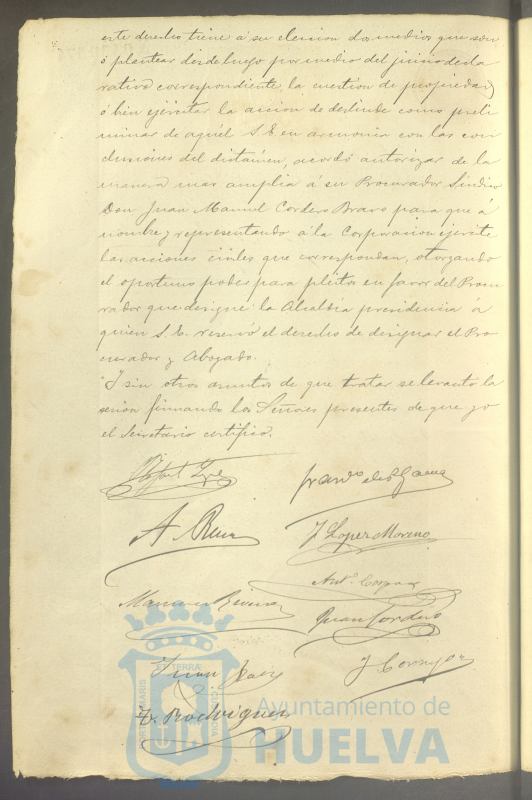 este derecho tiene á su eleccion dos medios que son
ó plantear desde luego por medio del juicio decla
rativo correspondiente, la cuestion de propiedad,
ó bien ejercitar la accion de deslinde como preli
minar de aquel S.E. en armonia con las con
clusiones del dictámen, acordó autorizar de la
manera mas amplia á su Procurador Síndico
Don Juan Manuel Cordero Bravo para que á
nombre y representando á la Corporacion ejercite
las acciones civiles que correspondan, otorgando
el oportuno poder para pleitos en favor del Procu
rador que designe la Alcaldia presidencia á
quien S.E. reservó el derecho de designar el Pro
curador y Abogado.
Y sin otros asuntos de que tratar se levantó la
sesion firmando los Señores presentes de que yo
el Secretario certifico.
A.
J Lopez Moreno
Antº
Manuel Rivera
Juan Cordero
Juan
J
T. Rodriguez
Ayuntamiento de
HUELVA